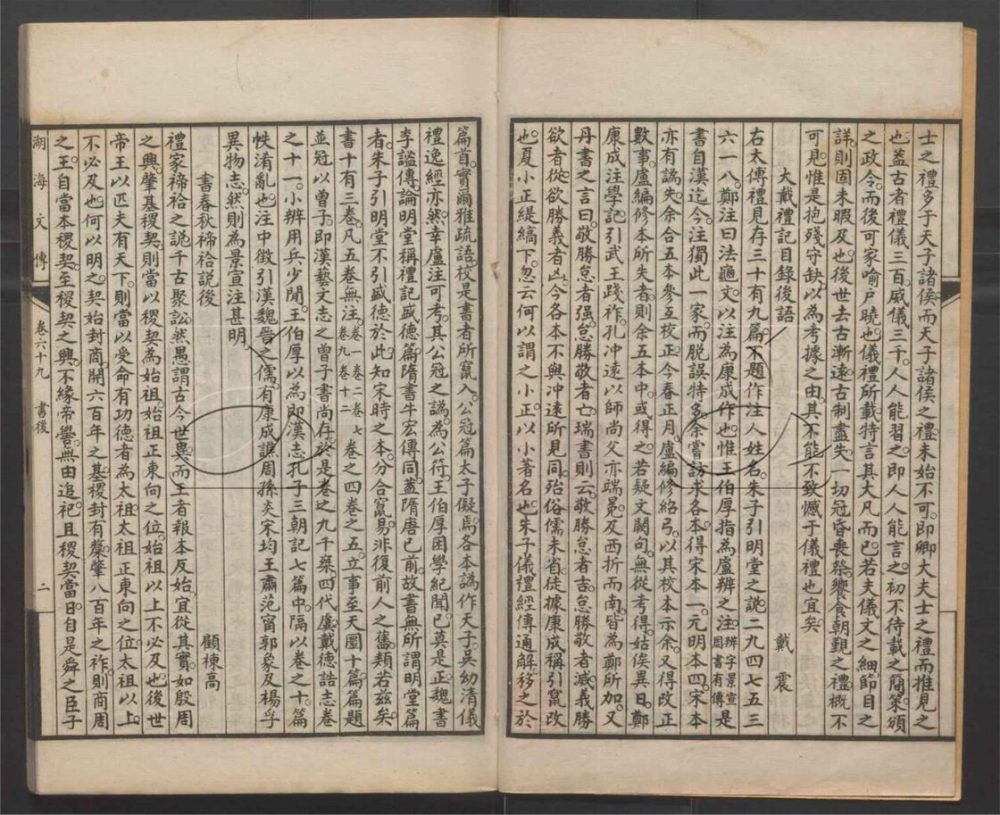 士之禮多于天子諸侯而天子諸侯之禮未始不可即卿大夫士之禮而推見之
也蓋古者禮儀三百威儀三千人人能習之即人人能言之初不待載之簡策頒
之政令而後可家喻户曉也儀禮所載特言其大凡而已若夫儀文之細節目之
詳則固未暇及也後世去古漸遠古制盡失一切冠昏喪祭饗食朝覲之禮概不
可見惟是抱殘守缺以為考據之由其不能不致憾于儀禮也宜矣
大戴禮記目錄後語 戴震
右太傅禮見存三十有九篇不題作注人姓名朱子引明堂之說二九四七五三
六一八鄭注曰法龜文以注為康成作也惟王伯厚指為盧辨之注辨字景宣周書有傳是
書自漢迄今注獨此一家而脫誤特多余嘗訪求各本得宋本一元明本四宋本
亦有譌失余合五本參互校正今春正月盧編修紹弓以其校本示余又得改正
數事盧編修本所失者則余五本中或得之若疑文闕句無從考得姑俟異日鄭
康成注學記引武王踐祚孔冲遠以師尚父亦端冕及西折而南皆為鄭所加又
丹書之言曰敬勝怠者强怠勝敬者亡瑞書則云敬勝怠者吉怠勝敬者滅義勝
欲者從欲勝義者凶今各本不與冲遠所見同殆俗儒未省徒據康成稱引竄改
也夏小正緹縞下忽云何以謂之小正以小著名也朱子儀禮經傳通解移之於
篇首實爾雅疏語校是書者所竄入公冠篇太子儗焉各本譌作天子吳幼清儀
禮逸經亦然幸盧注可考其公冠之譌為公符王伯厚困學紀聞已莫是正魏書
李謐傳論明堂稱禮記盛德篇隋書牛宏傳同蓋隋唐已前故書無所謂明堂篇
者朱子引明堂不引盛德於此知宋時之本分合竄易非復前人之舊類若茲矣
書十有三卷凡五卷無注卷一卷二卷七卷九卷十二卷之四卷之五立事至天圜十篇篇題
並冠以曾子即漢藝文志之曾子書尚存於是卷之九千椉四代虞戴德誥志卷
之十一小辨用兵少閒王伯厚以為即漢志孔子三朝記七篇中隔以卷之十篇
帙淆亂也注中徵引漢魏晉之儒有康成譙周孫炎宋均王肅范甯郭象及楊孚
異物志然則為景宣注甚明
書春秋禘祫說後 顧棟高
禮家禘祫之說千古聚訟然愚謂古今世異而王者報本反始宜從其實如殷周
之興肇基稷契則當以稷契為始祖始祖正東向之位始祖以上不必及也後世
帝王以匹夫有天下則當以受命有功德者為太祖太祖正東向之位太祖以上
不必及也何以明之契始封商開六百年之基稷封有斄肇八百年之祚則商周
之王自當本稷契至稷契之興不緣帝嚳無由追祀且稷契當日自是舜之臣子
湖海文傳 卷六十九 書後 二